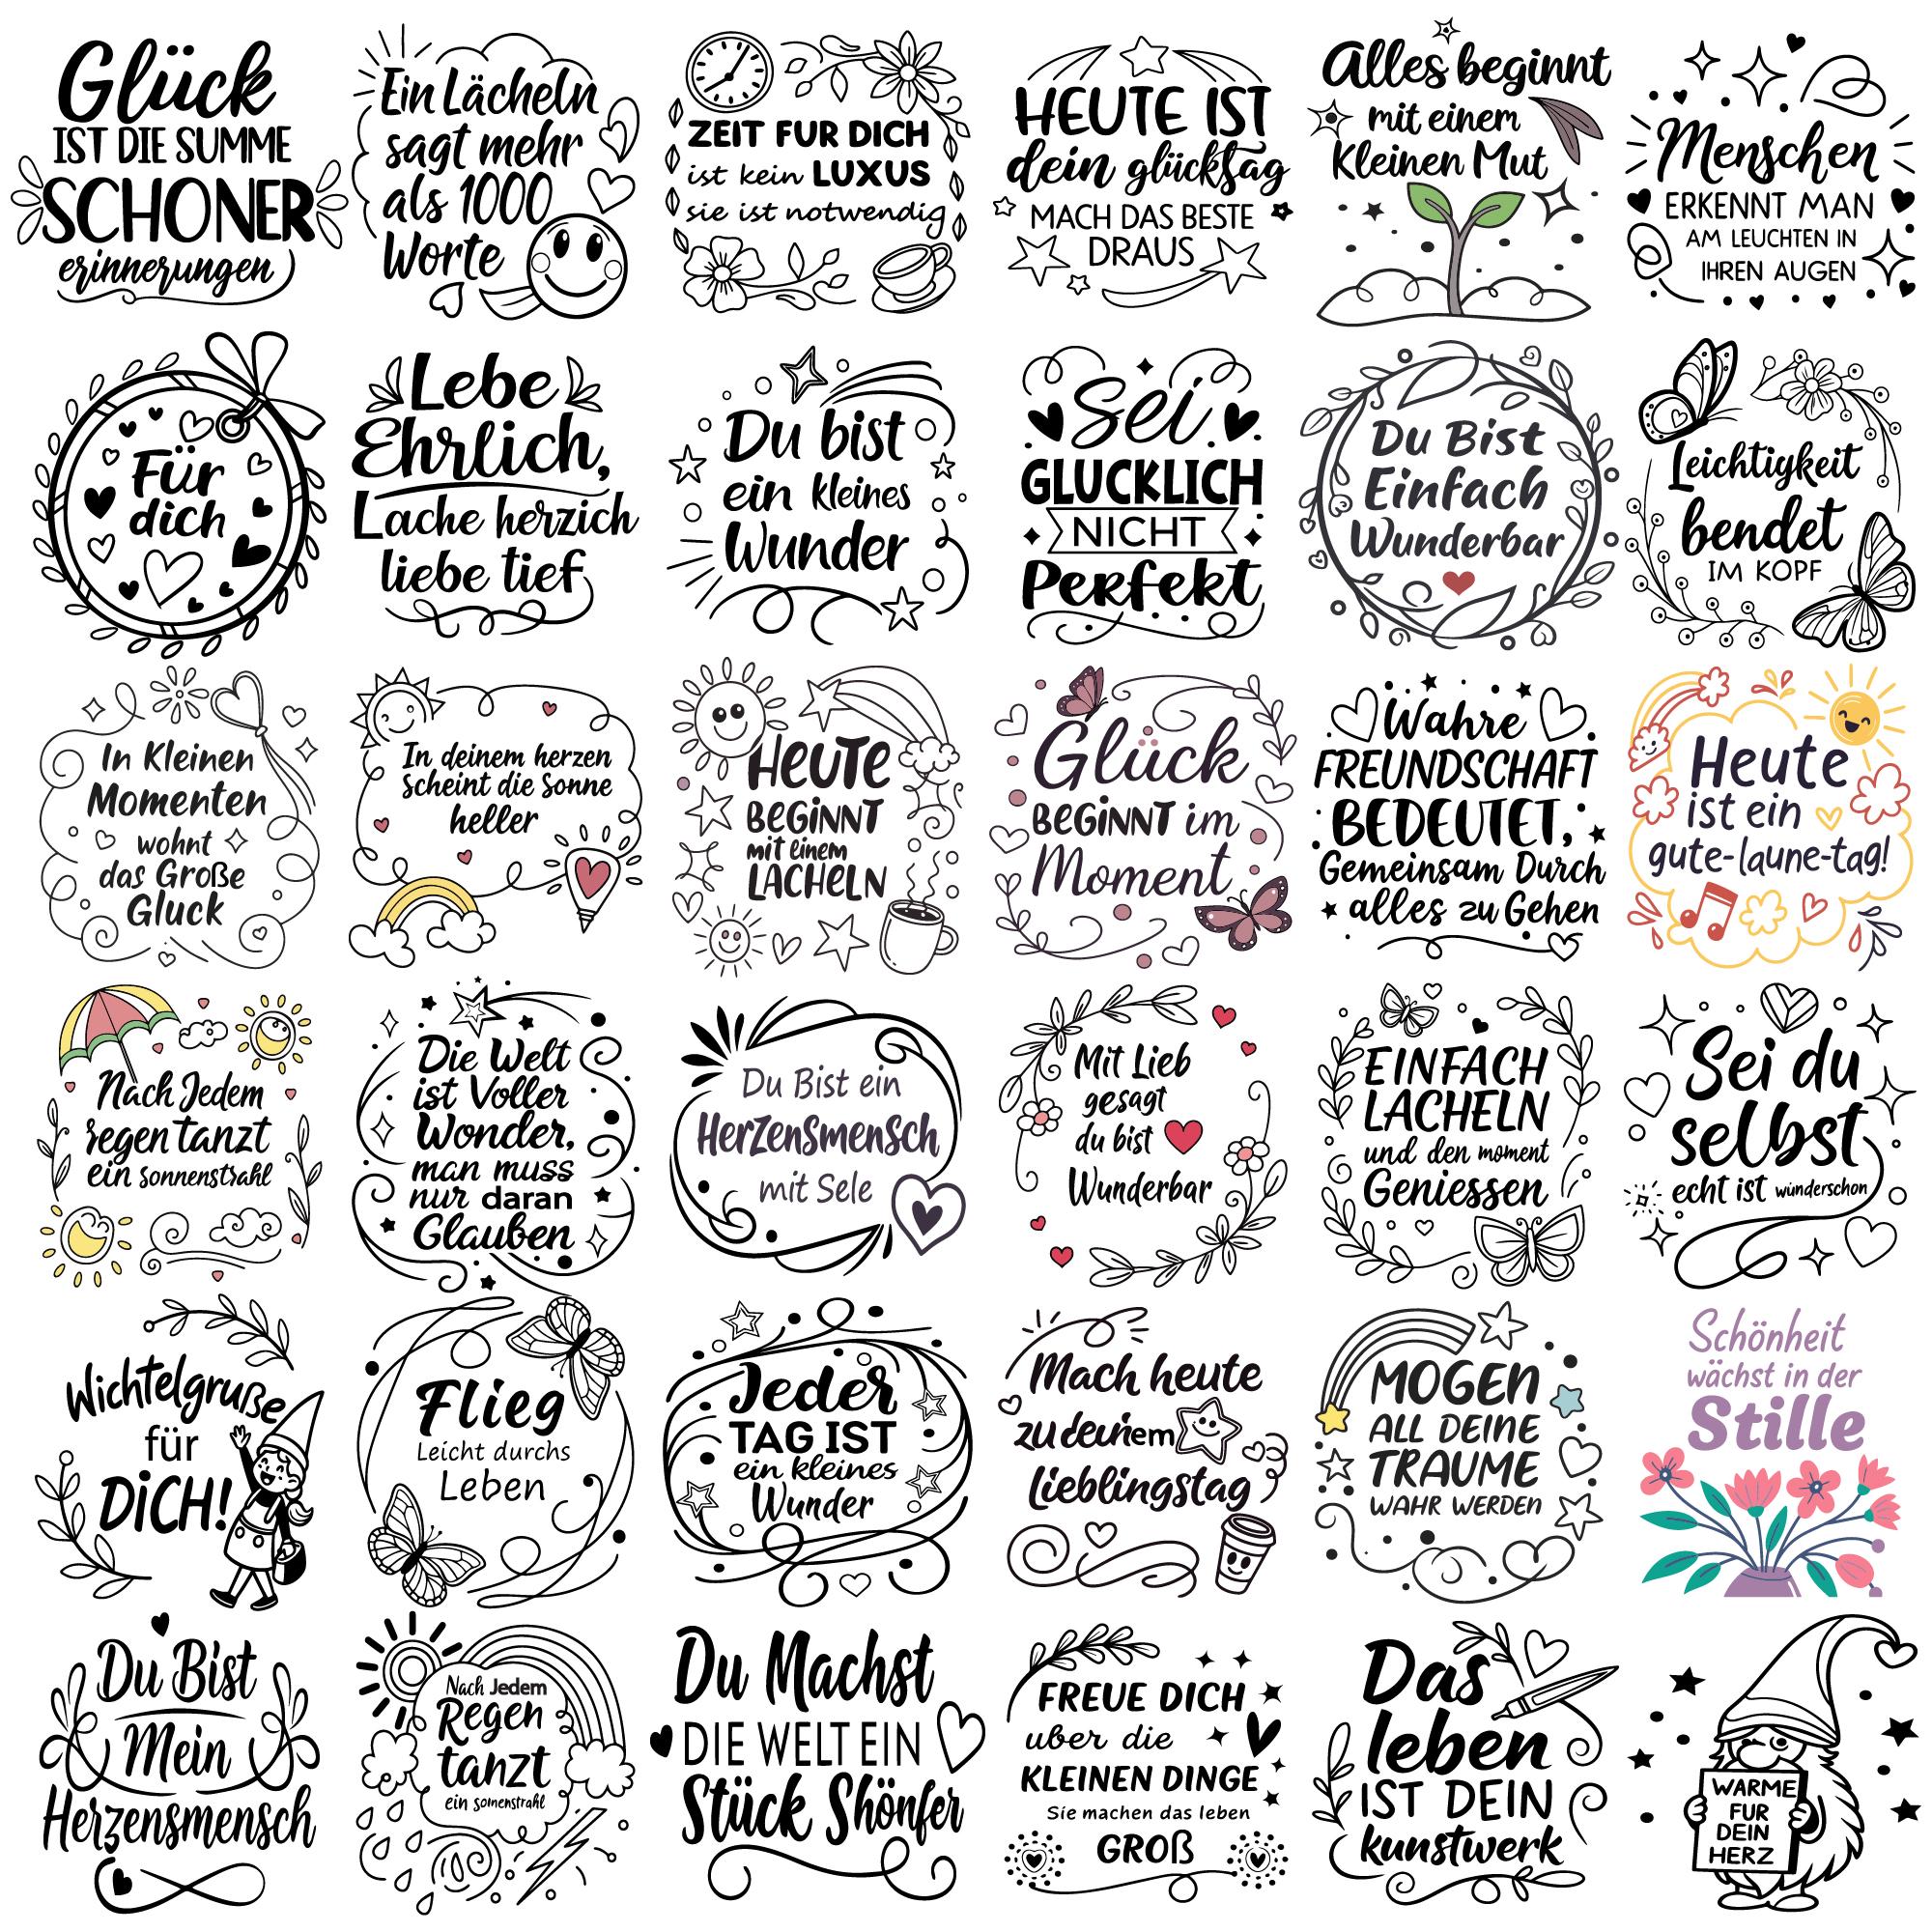 Glück
IST DIE SUMME
SCHONER
erinnerungen
Ein Lächeln
sagt mehr
als 1000
Worte
ZEIT FUR DICH
ist kein LUXUS
sie ist notwendig
HEUTE IST
dein glückstag
MACH DAS BESTE
DRAUS
Alles beginnt
mit einem
Kleinen Mut
Menschen
ERKENNT MAN
AM LEUCHTEN IN
IHREN AUGEN
Für
dich
Lebe
Ehrlich,
Lache herzich
liebe tief
Du bist
ein kleines
Wunder
Sei
GLUCKLICH
NICHT
Perfekt
Du Bist
Einfach
Wunderbar
Leichtigkeit
bendet
IM KOPF
In Kleinen
Momenten
wohnt
das Große
Gluck
In deinem herzen
scheint die Sonne
heller
HEUTE
BEGINNT
mit einem
LACHELN
Glück
BEGINNT im
Moment
Wahre
FREUNDSCHAFT
BEDEUTET,
Gemeinsam Durch
alles zu Gehen
Heute
ist ein
gute-laune-tag!
Nach Jedem
regen tanzt
ein sonnenstrahl
Die Welt
ist Voller
Wonder,
man muss
nur daran
Glauben
Du Bist ein
Herzensmensch
mit Sele
Mit Lieb
gesagt
du bist
Wunderbar
EINFACH
LACHELN
und den moment
Geniessen
Sei du
selbst
echt ist wunderschon
Wichtelgruße
für
DiCH!
Flieg
Leicht durchs
Leben
Jeder
TAG IST
ein kleines
Wunder
Mach heute
zu deinem
Lieblingstag
MOGEN
ALL DEINE
TRAUME
WAHR WERDEN
Schönheit
wächst in der
Stille
Du Bist
Mein
Herzensmensch
Nach Jedem
Regen
tanzt
ein somenstrahl
Du Machst
DIE WELT EIN
Stück Shönfer
FREUE DICH
uber die
KLEINEN DINGE
Sie machen das leben
GROß
Das
leben
IST DEIN
kunstwerk
WARME
FUR
DEIN
HERZ